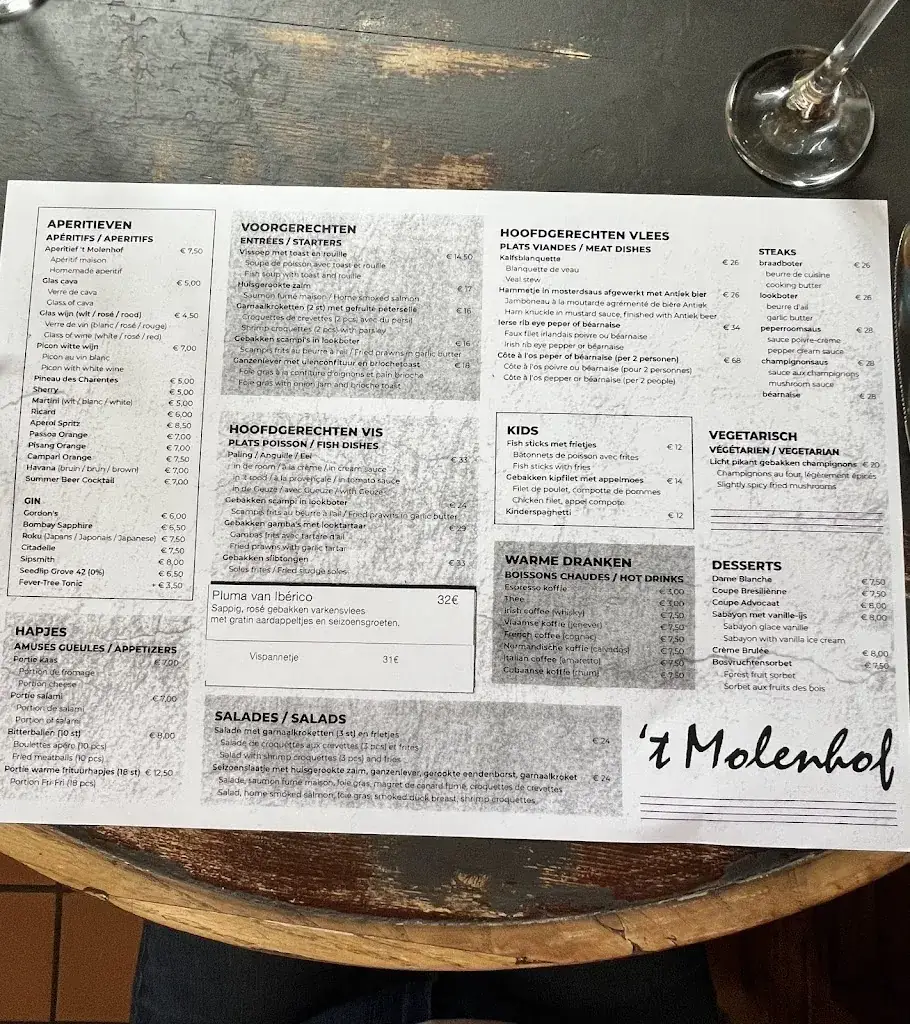 APERITIEVEN
APÉRITIFS / APERITIFS
Aperitief 't Molenhof € 7,50
Apéritif maison
Homemade aperitif
Glas cava € 5,00
Verre de cava
Glass of cava
Glas wijn (wit / rosé / rood) € 4,50
Verre de vin (blanc / rosé / rouge)
Glass of wine (white / rosé / red)
Picon witte wijn € 7,00
Picon au vin blanc
Picon with white wine
Pineau des Charentes € 5,00
Sherry € 5,00
Martini (wit / blanc / white) € 5,00
Ricard € 6,00
Aperol Spritz € 8,50
Passoa Orange € 7,00
Pisang Orange € 7,00
Campari Orange € 7,50
Havana (bruin / brun / brown) € 7,00
Summer Beer Cocktail € 7,00
GIN
Gordon's € 6,00
Bombay Sapphire € 6,50
Roku (Japans / Japonais / Japanese) € 7,50
Citadelle € 7,50
Sipsmith € 8,00
Seedlip Grove 42 (0%) € 6,50
Fever-Tree Tonic + € 3,50
HAPJES
AMUSES GUEULES / APPETIZERS
Portie kaas € 7,00
Portion de fromage
Portion cheese
Portie salami € 7,00
Portion de salami
Portion of salami
Bitterballen (10 st) € 8,00
Boulettes apéro (10 pcs)
Fried meatballs (10 pcs)
Portie warme frituurhapjes (18 st) € 12,50
Portion Fri-Fri (18 pcs)
VOORGERECHTEN
ENTRÉES / STARTERS
Vissoep met toast en rouille € 14,50
Soupe de poisson avec toast et rouille
Fish soup with toast and rouille
Huisgerookte zalm € 17
Saumon fumé maison / Home smoked salmon
Garnaalkroketten (2 st) met gefruite peterselie € 16
Croquettes de crevettes (2 pcs) avec du persil
Shrimp croquettes (2 pcs) with parsley
Gebakken scampi's in lookboter € 16
Scampis frits au beurre à l'ail / Fried prawns in garlic butter
Ganzenlever met uienconfituur en briochetoast € 18
Foie gras à la confiture d'oignons et pain brioche
Foie gras with onion jam and brioche toast
HOOFDGERECHTEN VIS
PLATS POISSON / FISH DISHES
Paling / Anguille / Eel € 33
in de room / à la crème / in cream sauce
in 't rood / à la provençale / in tomato sauce
in de Geuze / avec Gueuze / with Geuze
Gebakken scampi in lookboter € 24
Scampis frits au beurre à l'ail / Fried prawns in garlic butter
Gebakken gamba's met looktartaar € 29
Gambas frits avec tartare d'ail
Fried prawns with garlic tartar
Gebakken slibtongen € 33
Soles frites / Fried sludge soles
Pluma van Ibérico 32€
Sappig, rosé gebakken varkensvlees
met gratin aardappeltjes en seizoensgroeten.
Vispannetje 31€
SALADES / SALADS
Salade met garnaalkroketten (3 st) en frietjes € 24
Salade de croquettes aux crevettes (3 pcs) et frites
Salad with shrimp croquettes (3 pcs) and fries
Seizoenslaatje met huisgerookte zalm, ganzenlever, gerookte eendenborst, garnaalkroket € 24
Salade, saumon fumé maison, foie gras, magret de canard fumé, croquettes de crevettes
Salad, home smoked salmon, foie gras, smoked duck breast, shrimp croquettes
HOOFDGERECHTEN VLEES
PLATS VIANDES / MEAT DISHES
Kalfsblanquette € 26
Blanquette de veau
Veal stew
Hammetje in mosterdsaus afgewerkt met Antiek bier € 26
Jambonneau à la moutarde agrémenté de bière Antiek
Ham knuckle in mustard sauce, finished with Antiek beer
Ierse rib eye peper of béarnaise € 34
Faux filet irlandais poivre ou béarnaise
Irish rib eye pepper or béarnaise
Côte à l'os peper of béarnaise (per 2 personen) € 68
Côte à l'os poivre ou béarnaise (pour 2 personnes)
Côte à l'os pepper or béarnaise (per 2 people)
STEAKS
braadboter € 26
beurre de cuisine
cooking butter
lookboter € 26
beurre d'ail
garlic butter
peperroomsaus € 28
sauce poivre-crème
pepper cream sauce
champignonsaus € 28
sauce aux champignons
mushroom sauce
béarnaise € 28
KIDS
Fish sticks met frietjes € 12
Bâtonnets de poisson avec frites
Fish sticks with fries
Gebakken kipfilet met appelmoes € 14
Filet de poulet, compotte de pommes
Chicken filet, appel compote
Kinderspaghetti € 12
VEGETARISCH
VÉGÉTARIEN / VEGETARIAN
Licht pikant gebakken champignons € 20
Champignons au four, légèrement épicés
Slightly spicy fried mushrooms
WARME DRANKEN
BOISSONS CHAUDES / HOT DRINKS
Espresso koffie € 3,00
Thee € 3,00
Irish coffee (whisky) € 7,50
Vlaamse koffie (jenever) € 7,50
French coffee (cognac) € 7,50
Normandische koffie (calvados) € 7,50
Italian coffee (amaretto) € 7,50
Cubaanse koffie (rhum) € 7,50
DESSERTS
Dame Blanche € 7,50
Coupe Bresiliènne € 7,50
Coupe Advocaat € 8,00
Sabayon met vanille-ijs € 8,00
Sabayon glace vanille
Sabayon with vanilla ice cream
Crème Brulée € 8,00
Bosvruchtensorbet € 7,50
Forest fruit sorbet
Sorbet aux fruits des bois
't Molenhof